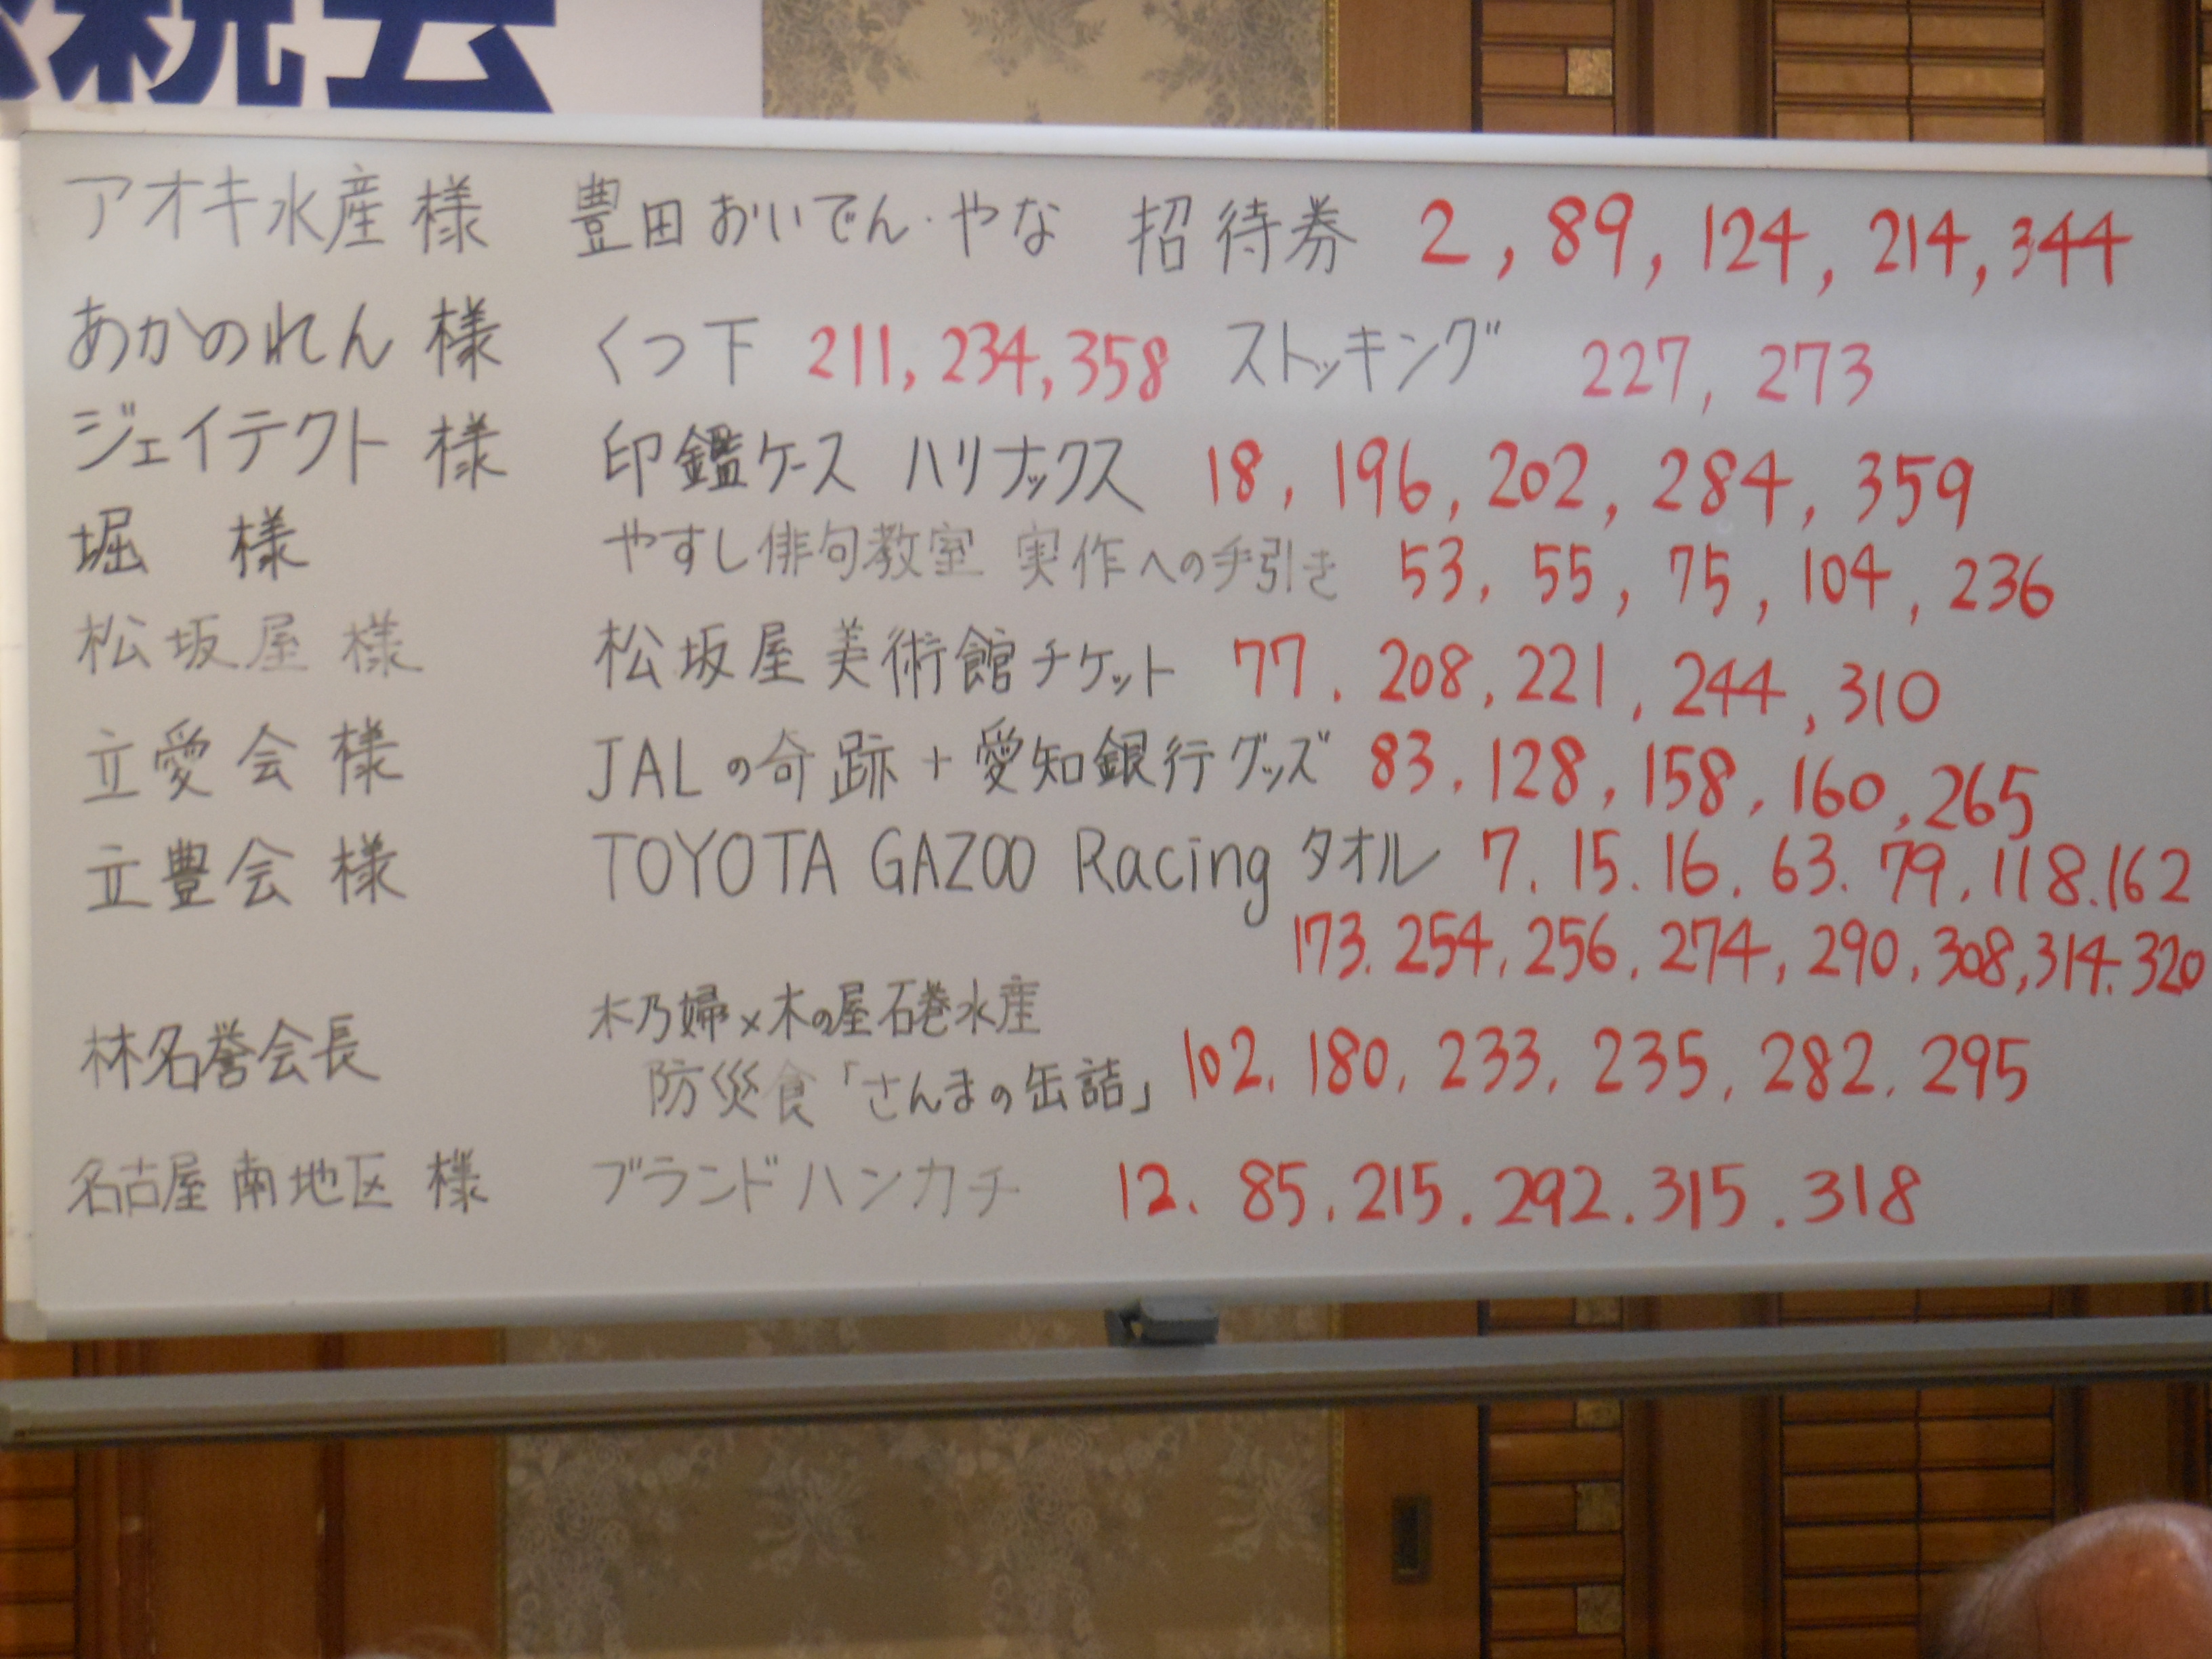 親会
アオキ水産 様 豊田おいでん・やな 招待券 2, 89, 124, 214, 344
あかのれん 様 くつ下 211, 234, 358 ストッキング 227, 273
ジェイテクト 様 印鑑ケース ハリナックス 18, 196, 202, 284, 359
堀 様 やすし俳句教室 実作への手引き 53, 55, 75, 104, 236
松坂屋 様 松坂屋美術館チケット 77. 208, 221, 244, 310
立愛会 様 JALの奇跡+愛知銀行グッズ 83. 128, 158, 160, 265
立豊会 様 TOYOTA GAZOO Racing タオル 7. 15. 16. 63. 79, 118. 162
173. 254, 256. 274, 290, 308, 314. 320
木乃婦×木の屋石巻水産
林名誉会長 防災食「さんまの缶詰」 102. 180. 233. 235, 282. 295
名古屋南地区 様 ブランドハンカチ 12. 85. 215. 292. 315. 318